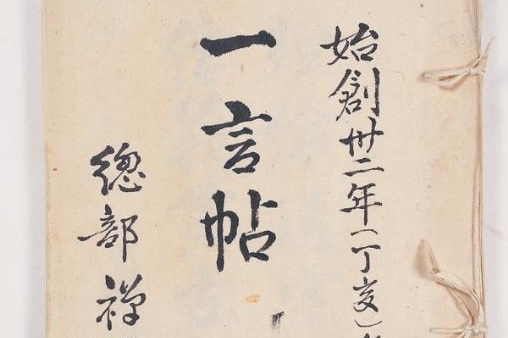 始創卅二年(丁亥)
一言帖
總部禪